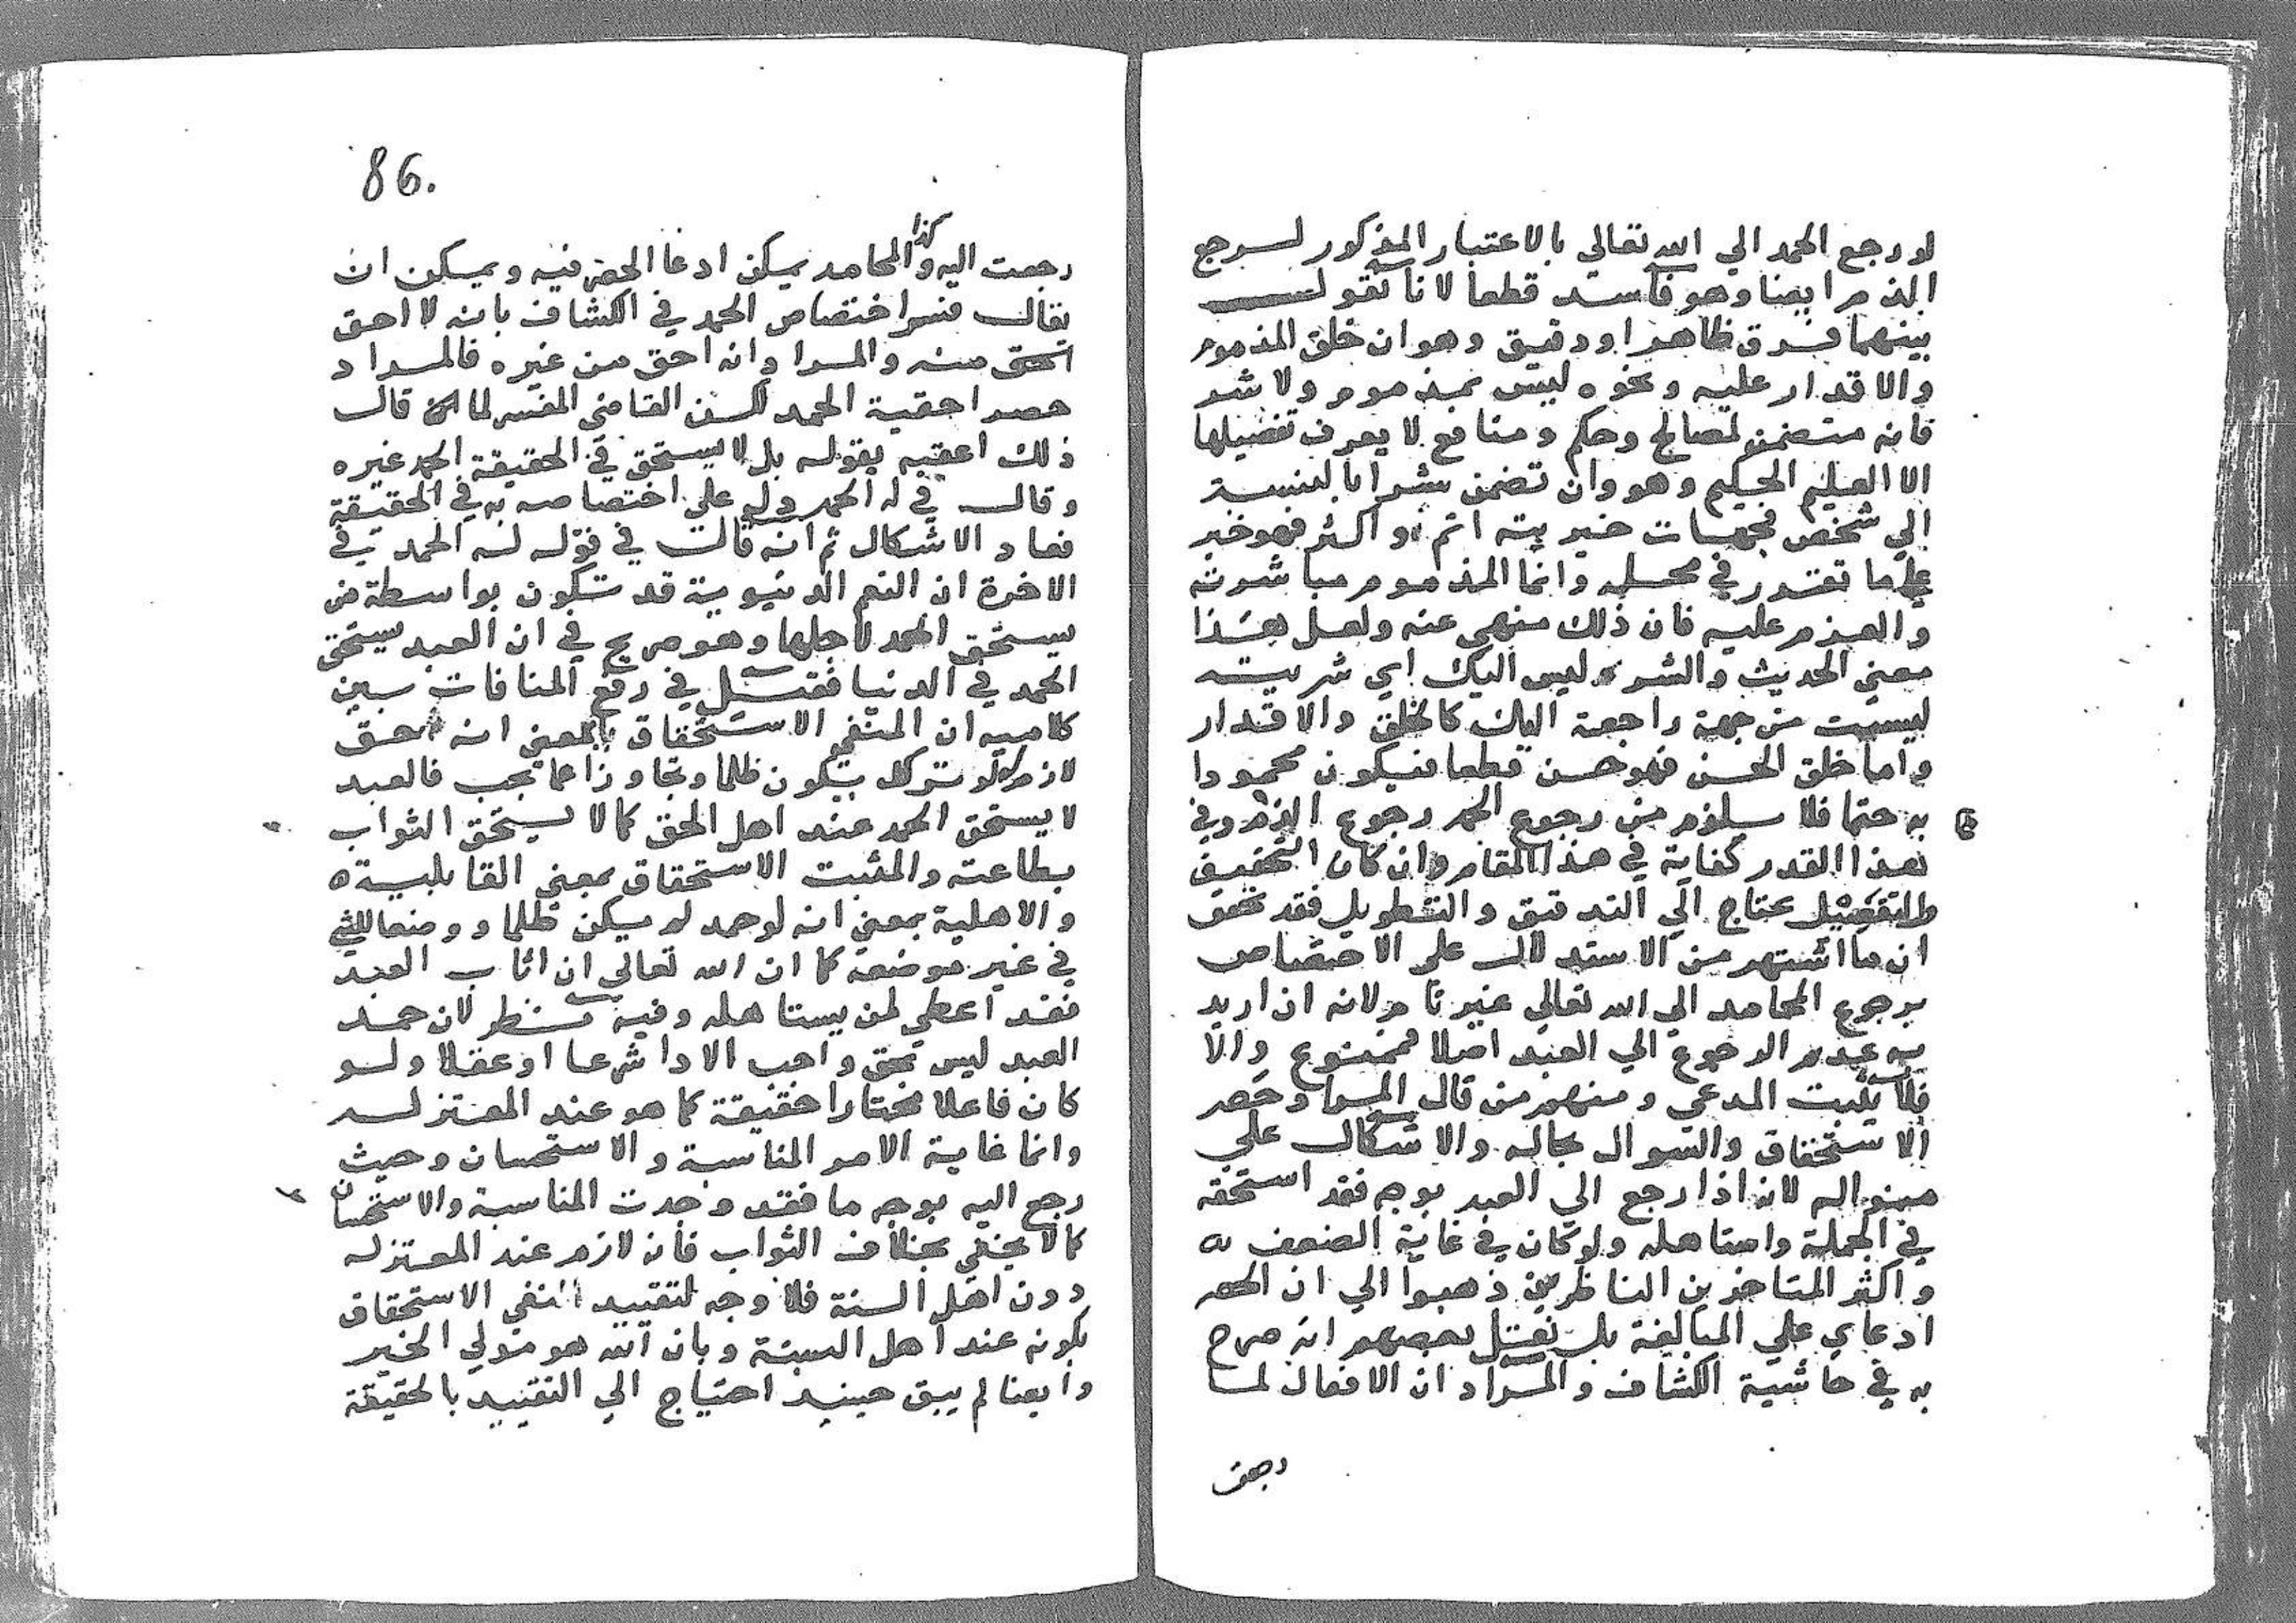 لو رجع الحمد الي الله تعالي بالاعتبار المذكور لرجع
الذم ايضا وهو فاسد قطعا لانا نقول
بينهما فرق ظاهر او دقيق وهو ان خلق المذموم
والاقدار عليه ونحوه ليس بمذموم ولا شر
فانه متضمن لمصالح وحكم ومنافع لا يعرف تفصيلها
الا العليم الحكيم وهو وان تضمن شرا بالنسبة
الي شخص فجهات خيريته اتم واكثر فهو خير
علي ما تقرر في محله وانما المذموم مباشرته
والعزم عليه فان ذلك منهي عنه ولعل هذا
معني الحديث والشر ليس اليك اي شريته
ليست من جهة راجعة اليك كالخلق والاقدار
واما خلق الحسن فهو حسن قطعا فيكون محمودا
به حتما فلا يلزم من رجوع الحمد رجوع الذم وفي
هذا القدر كفاية في هذا المقام وان كان التحقيق
والتفصيل يحتاج الي التدقيق والتطويل فقد تحقق
ان ما اشتهر من الاستدلال علي الاختصاص
برجوع المحامد الي الله تعالي غير تام لانه ان اريد
به عدم الرجوع الي العبد اصلا فممنوع والا
فلا يثبت المدعي ومنهم من قال المراد حصر
الاستحقاق والسوال بحاله والاشكال علي
منواله لانه اذا رجع الي العبد بوجه فقد استحقه
في الجملة واستاهله ولو كان في غاية الضعف
واكثر المتاخرين الناظرين ذهبوا الي ان الحصر
ادعاي علي المبالغة بل نقل بعضهم انه صرح
به في حاشية الكشاف والمراد ان الافعال لما
رجعت
86.
كذا
رجعت اليه والمحامد يمكن ادعا الحصر فيه ويمكن ان
يقال فسر اختصاص الحمد في الكشاف بانه لا احق
احق منه والمراد انه احق من غيره فالمراد
حصر احقية الحمد لكن القاضي المفسر لما قال
ذلك اعقبه بقوله بل لا يستحق في الحقيقة الحمد غيره
وقال في له الحمد دل علي اختصاصه به في الحقيقة
فعاد الاشكال ثم انه قال في قوله له الحمد في
الاخرة ان النعم الدنيوية قد تكون بواسطة من
يستحق الحمد لاجلها وهو صريح في ان العبد يستحق
الحمد في الدنيا فقيل في رفع المنافات بين
كلاميه ان المنفي الاستحقاق بالمعني انه حق
لازم لو ترك يكون ظلما وتجاوزا عما يجب فالعبد
لا يستحق الحمد عند اهل الحق كما لا يستحق الثواب
بطاعته والمثبت الاستحقاق بمعني القابلية
والاهلية بمعني انه لو حمد لم يكن ظلما ووضعا للشي
في غير موضعه كما ان الله تعالي ان اثاب العبد
فقد اعطي لمن يستاهله وفيه نظر لان حمد
العبد ليس بحق واجب الادا شرعا او عقلا ولو
كان فاعلا مختارا حقيقة كما هو عند المعتزله
وانما غاية الامر المناسبة والاستحسان وحيث
رجع اليه بوجه ما فقد وجدت المناسبة والاستحسان
كما لا يخفي بخلاف الثواب فانه لازم عند المعتزله
دون اهل السنة فلا وجه لتقييد النفي الاستحقاق
بكونه عند اهل السنة وبان الله هو مولي الخير
وايضا لم يبق حينيذ احتياج الي التقييد بالحقيقة